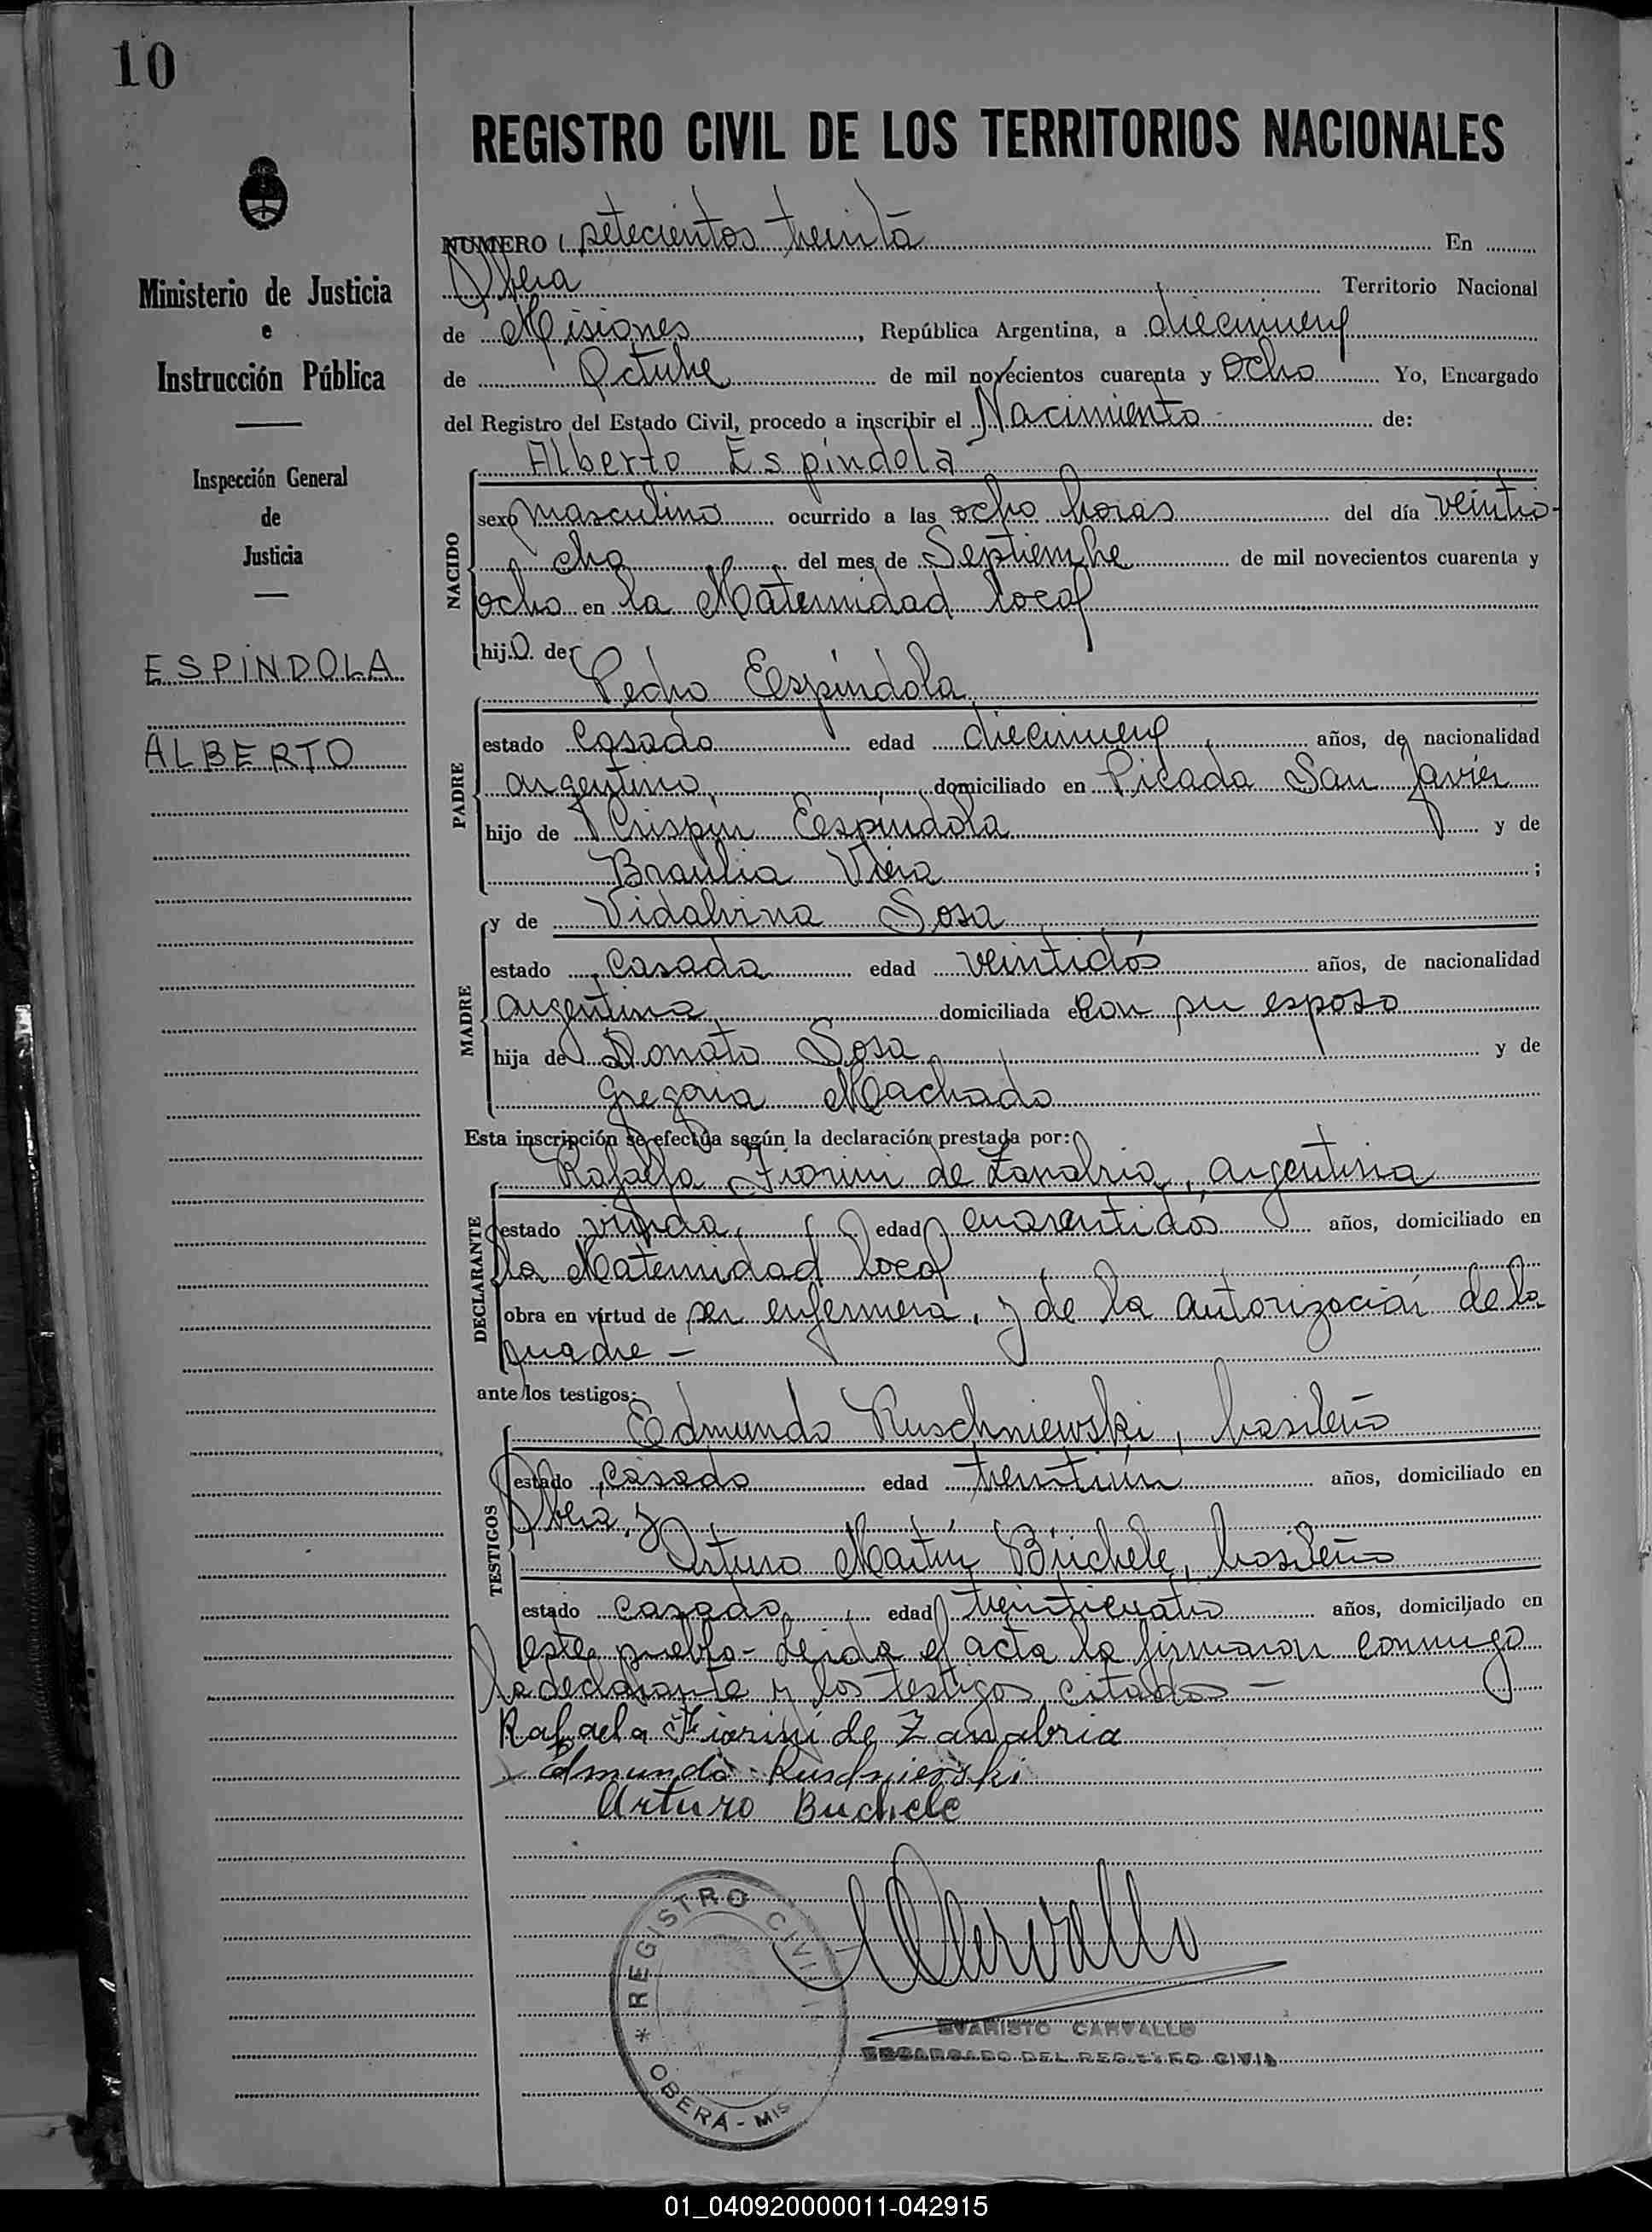 10
REGISTRO CIVIL DE LOS TERRITORIOS NACIONALES
Ministerio de Justicia
e
Instrucción Pública
Inspección General
de
Justicia
ESPÍNDOLA
ALBERTO
NUMERO setecientos treinta En
Oberá Territorio Nacional
de Misiones, República Argentina, a diecinueve
de Octubre de mil novecientos cuarenta y ocho Yo, Encargado
del Registro del Estado Civil, procedo a inscribir el Nacimiento de:
Alberto Espíndola
NACIDO
sexo masculino ocurrido a las ocho horas del día veintio-
cho del mes de Septiembre de mil novecientos cuarenta y
ocho en la Maternidad local
hijo de:
Pedro Espíndola
PADRE
estado casado edad diecinueve años, de nacionalidad
argentino, domiciliado en Picada San Javier
hijo de Crispín Espíndola y de
Braulia Viera ;
MADRE
y de Vidalvina Sosa
estado casada edad veintidós años, de nacionalidad
argentina domiciliada con su esposo
hija de Donato Sosa y de
Gregoria Machado
Esta inscripción se efectúa según la declaración prestada por:
Rafaela Fiorini de Zanabria, argentina
DECLARANTE
estado viuda edad cuarentidós años, domiciliado en
la Maternidad local
obra en virtud de ser enfermera, y de la autorización de la
madre -
ante los testigos:
Edmundo Ruschniewski, brasileño
TESTIGOS
estado casado edad treintiún años, domiciliado en
Oberá, y
Arturo Martín Büchele, brasileño
estado casado edad treinticuatro años, domiciliado en
este pueblo- Leída el acta la firmaron conmigo
la declarante y los testigos citados -
Rafaela Fiorini de Zanabria
Edmundo Ruschniewski
Arturo Buchele
Carvallo
REGISTRO CIVIL
* OBERÁ - MIS
EVARISTO CARVALLO
ENCARGADO DEL REGISTRO CIVIL
01_040920000011-042915